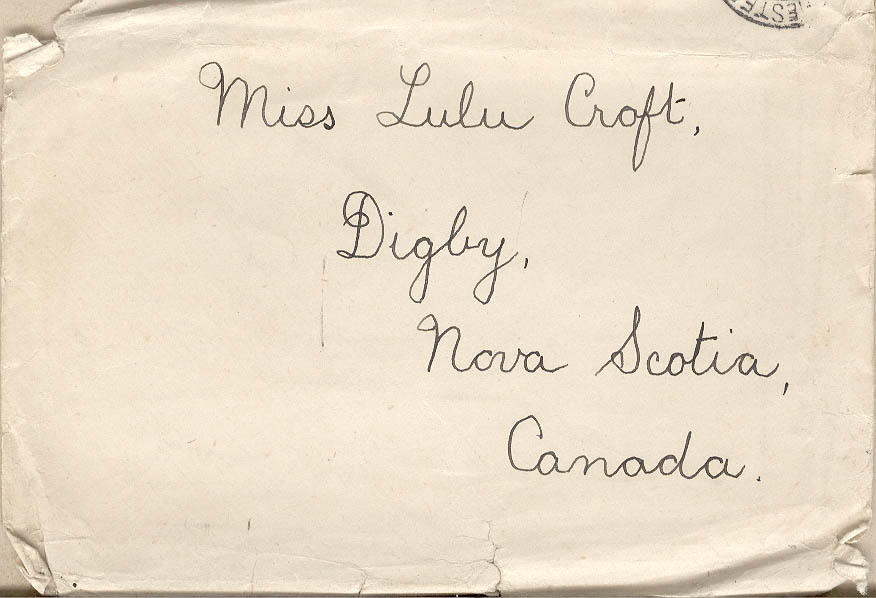 Miss Lulu Croft,
Digby,
Nova Scotia,
Canada.